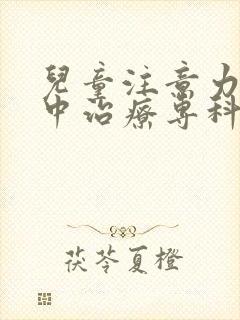 兒童注意力
中治療專科
茯苓夏橙